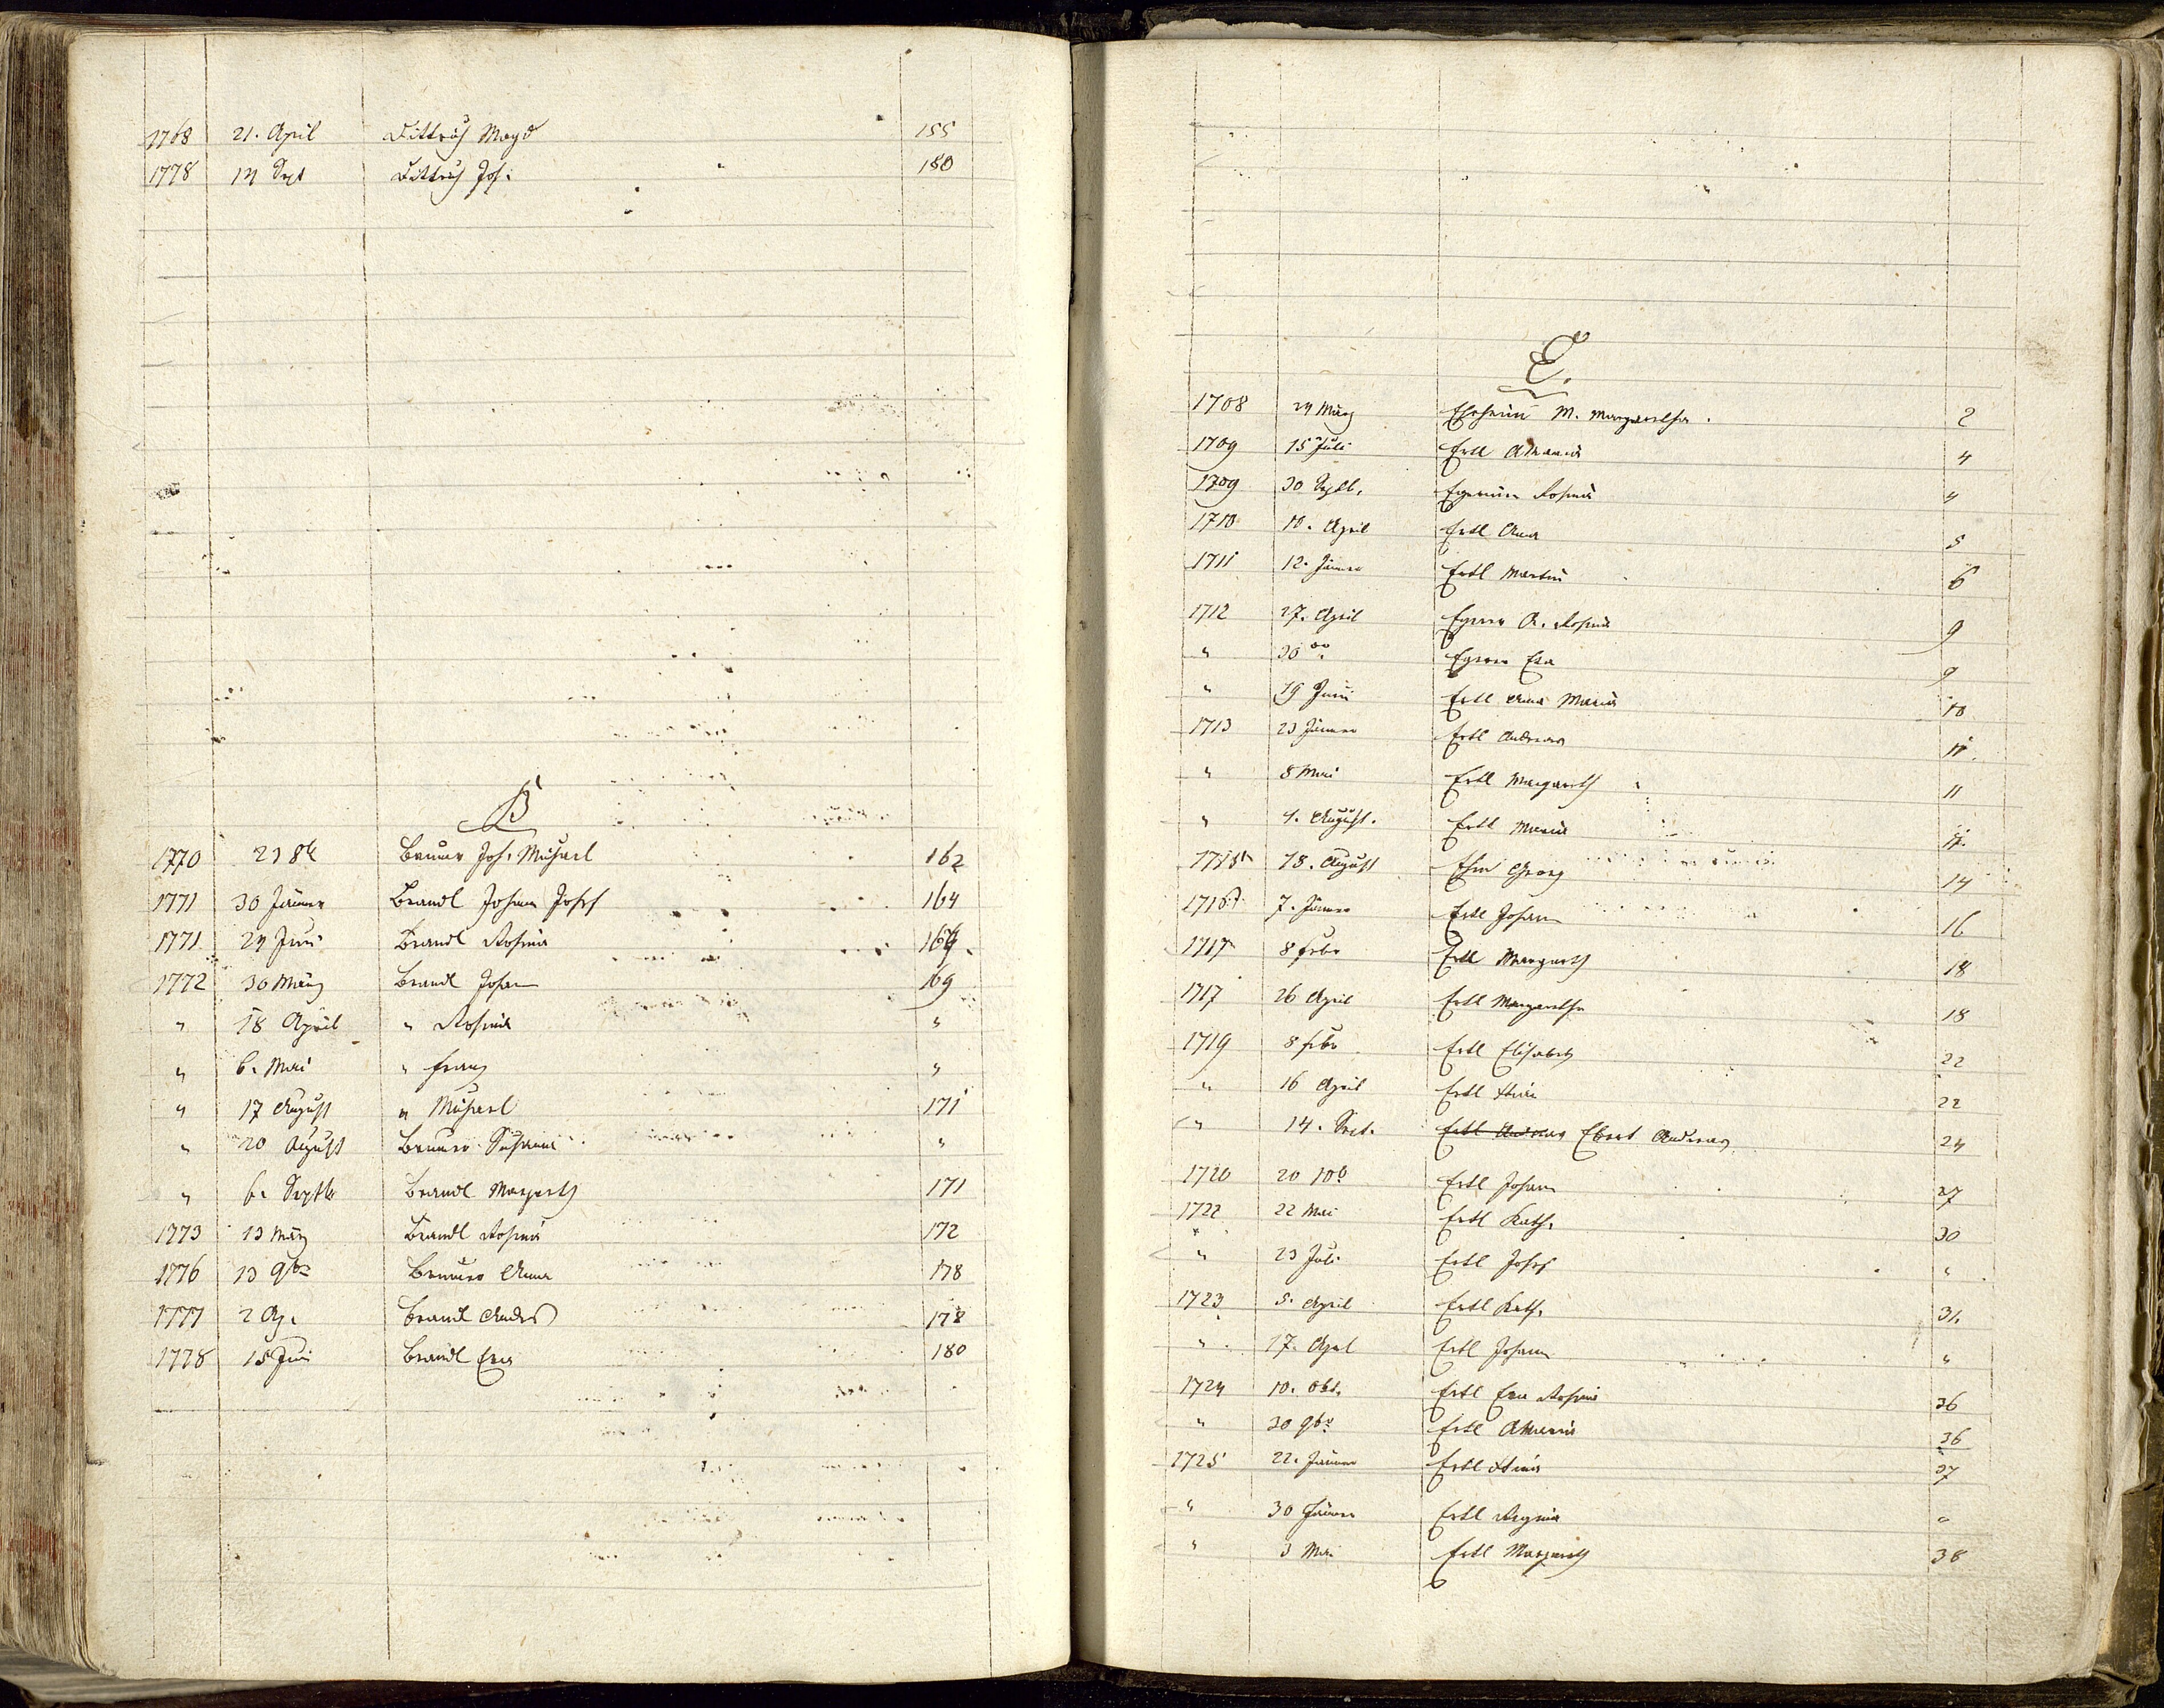 1768 21. April Dittrich Magd 155
1778 14 Sept Dittrich Joh: 180
B
1770 23 8br Bruner Joh. Michael 162
1771 30 Jänner Brandl Johann Josef 164
1771 24 Juni Brandl Rosina
1772 30 März Brandl Johann 169
" 18 April " Rosina "
" 6. Mai " Franz "
" 17 August " Michael 171
" 20 August Bruner Susanna "
" 6. Septbr Brandl Margareth 171
1773 13 März Brandl Rosina 172
1776 13 9br Bruner Anna 178
1777 2 Ap. Brandl Andrs 178
1778 15 Juni Brandl Eva 180
E.
1708 24 März M. Margaretha. 2
1709 15 Juli Ertl AMaria 4
1709 30 Septb. Rosina 4
1710 10. April Ertl Anna 5
1711 12. Jänner Ertl Martin 6
1712 27. April Egerer A. Rosina 9
" 30 Egerer Eva 9
" 19 Juni Ertl Anna Maria 10
1713 23 Jänner Ertl Andreas 11.
" 8 Mai Ertl Margareth 11
" 4. August. Ertl Maria
1715 18. August Georg 14
1716 7. Jänner Ertl Johann 16
1717 8 Febr Ertl Margareth 18
1717 26 April Ertl Margaretha 18
1719 8 Febr Ertl Elisabeth 22
" 16 April Ertl 22
" 14. Sept. Ertl Andreas Ebert Andreas 24
1720 20 10b Ertl Johann 27
1722 22 Mai Ertl Kath. 30
" 23 Juli Ertl Josef "
1723 5. April Ertl Kath. 31.
" 17. April Ertl Johann "
1724 10. Obt. Ertl Eva Rosina 36
" 30 9br Ertl AMaria 36
1725 22. Jänner Ertl 37
" 30 Jänner Ertl Regina "
" 3 Mai Ertl Margareth 38